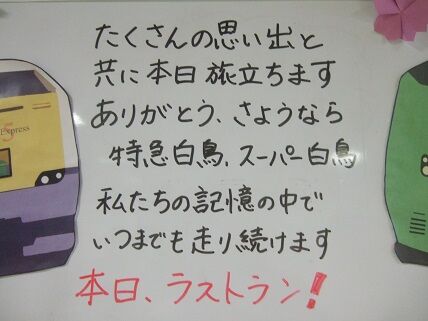 たくさんの思い出と
共に本日旅立ちます
ありがとう、さようなら
特急白鳥、スーパー白鳥
私たちの記憶の中で
いつまでも走り続けます
本日、ラストラン!
Express
5